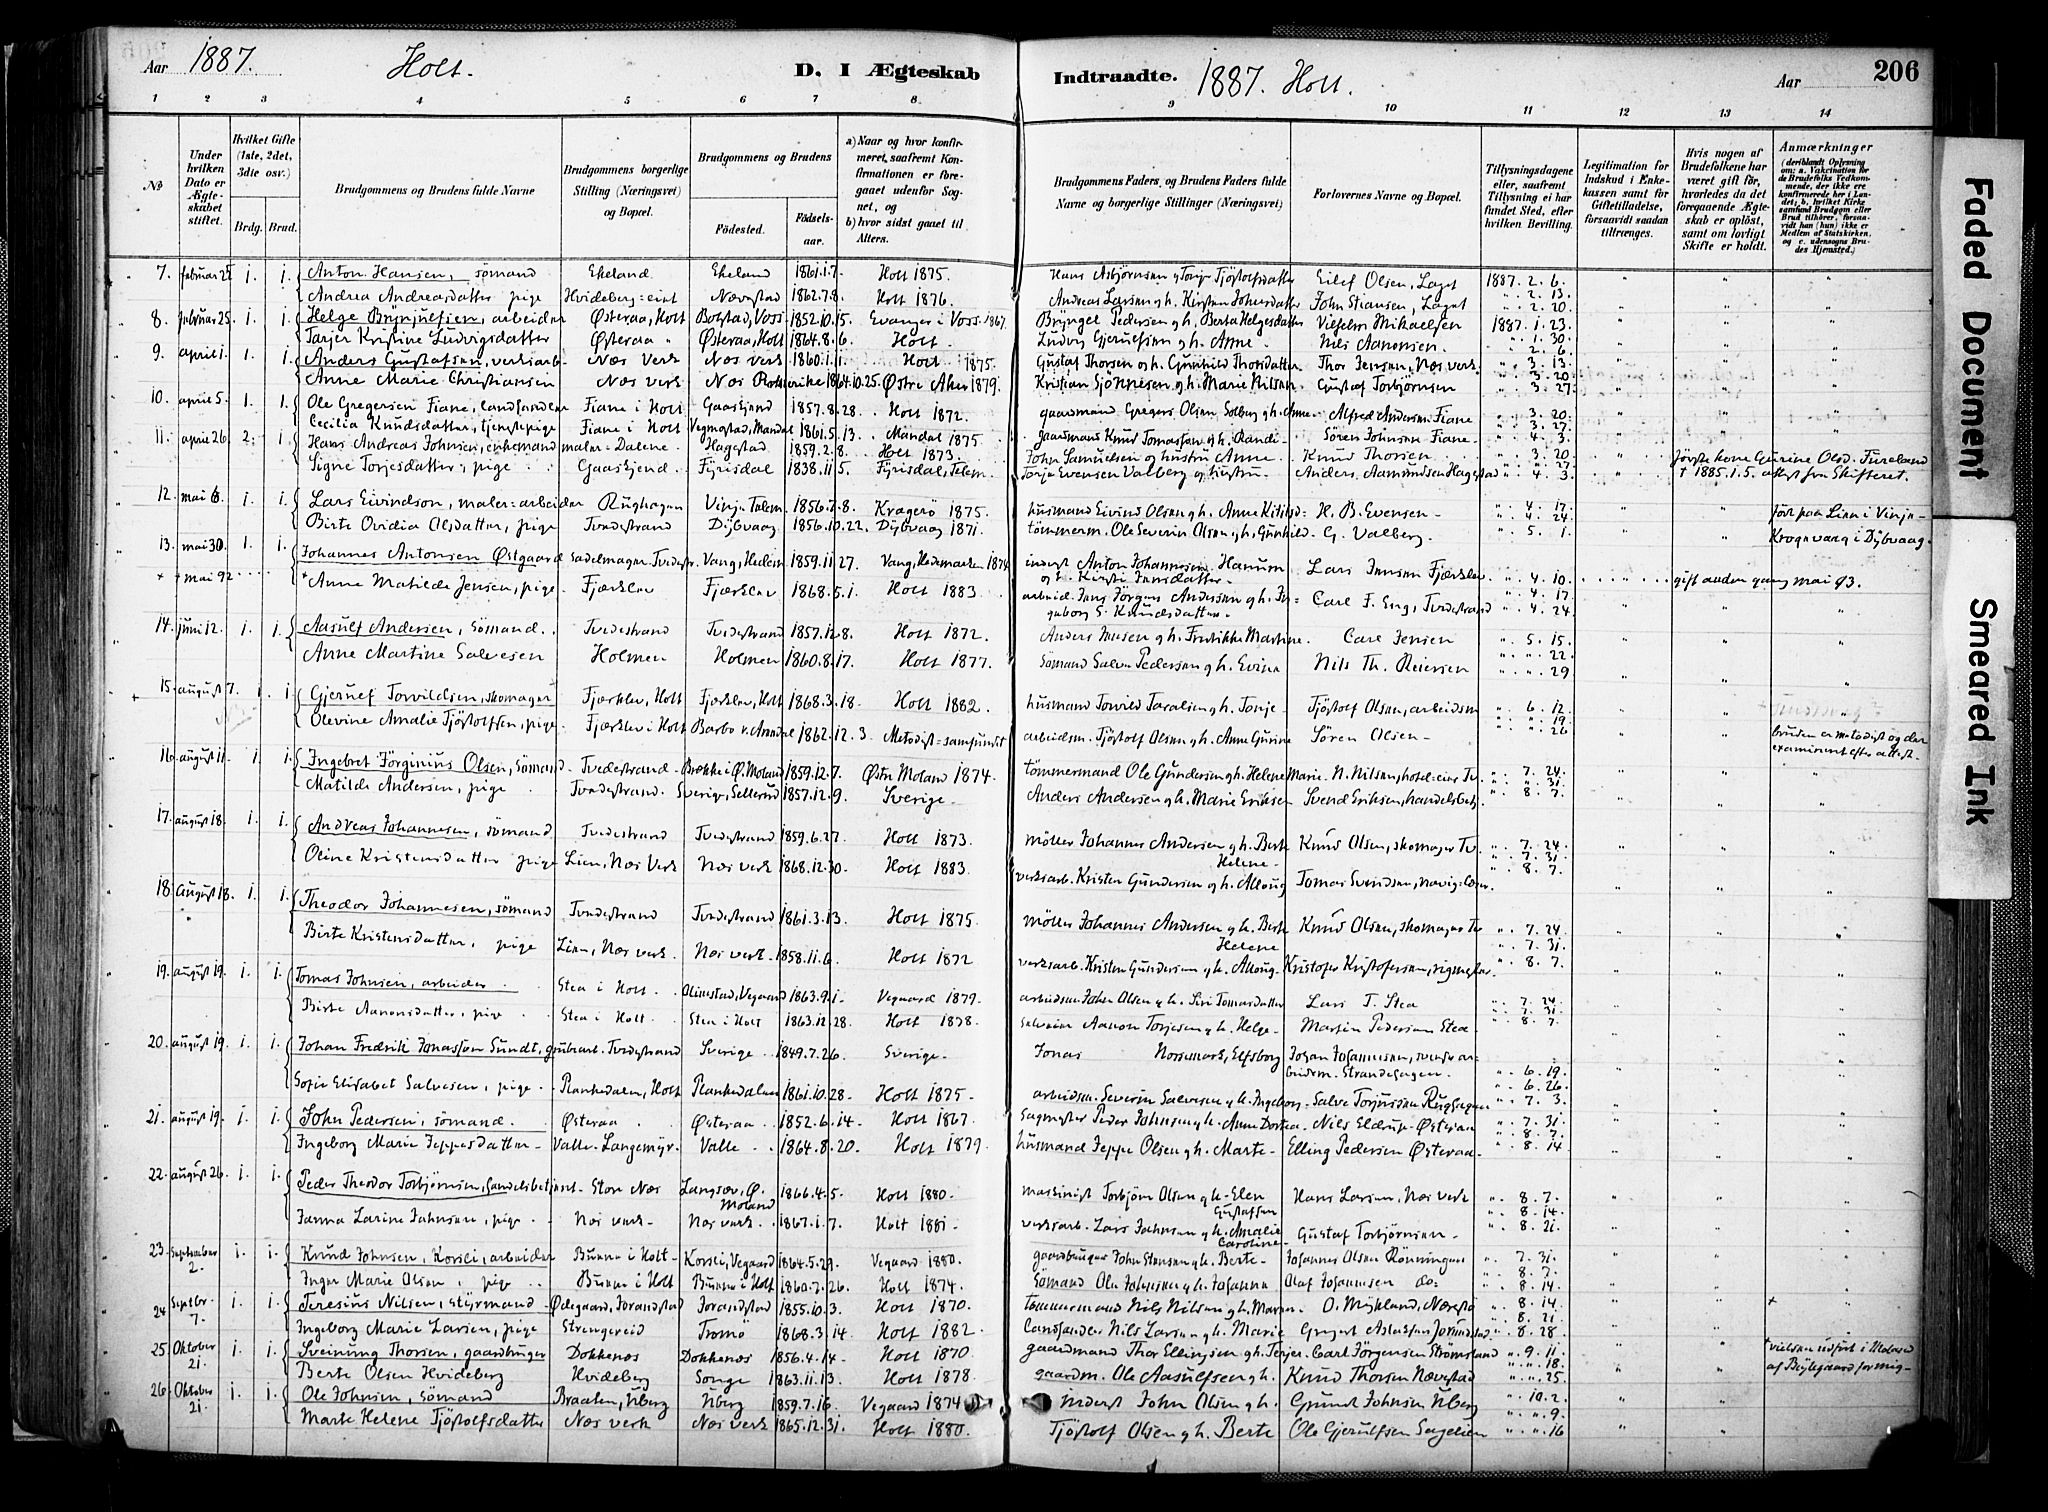 Aar 1887. Holt. D. I Ægteskab Indtraadte. 1887. Holt. Aar 206
1 2 3 4 5 6 7 8 9 10 11 12 13 14
№
Under hvilken Dato er Ægteskabet stiftet.
Hvilket Gifte (1ste, 2det, 3die osv.)
Brdg. Brud.
Brudgommens og Brudens fulde Navne
Brudgommens borgerlige Stilling (Næringsvei) og Bopæl.
Brudgommens og Brudens
Fødested. Fødselsaar.
a) Naar og hvor konfirmeret, saafremt Konfirmationen er foregaaet udenfor Sognet, og
b) hvor sidst gaaet til Alters.
Brudgommens Faders og Brudens Faders fulde Navne og borgerlige Stillinger (Næringsvei)
Forlovernes Navne og Bopæl.
Tillysningsdagene eller, saafremt Tillysning ei har fundet Sted, efter hvilken Bevilling.
Legitimation for Indskud i Enkekassen samt for Giftetilladelse, forsaavidt saadan tiltrænges.
Hvis nogen af Brudefolkene har været gift før, hvorledes da det foregaaende Ægteskab er opløst, samt om lovligt Skifte er holdt.
Anmærkninger
(deriblandt Oplysning om: a. Vakcination for de Brudefolks Vedkommende, der ikke ere konfirmerede her i Landet; b. hvilket Kirkesamfund Brudgom eller Brud tilhører, forsaavidt han (hun) ikke er Medlem af Statskirken, og c. udensogns Brudes Hjemsted.)
7. februar 25 1. 1. Anton Hansen, sömand Ekeland Ekeland 1861.1.7. Holt 1875. Hans Asbjörnsen Eilef Olsen, Laget 1887. 2. 6.
Andrea Andreasdatter, pige Hvideberg Nævestad 1862.7.8. Holt 1876. Andreas Larsen g h. Kirsten Johnsdatter John Stiansen, Laget 2. 13.
2. 20
8. februar 25. 1. 1. Helge Brynjulfsen, arbeider Østeraa, Holt Bolstad, Voss 1852.10.15. Evanger i Voss 1867 Brynjel Pedersen g h. Berta Helgesdatter Vilhelm Mikaelsen 1887. 1. 23.
Tarjer Kristine Ludvigsdatter Østeraa Østeraa, Holt 1864.8.6 Holt Ludvig Gjerulfsen g h. Anne Nils Aanonsen 1. 30.
2. 6.
9. april 1. 1. 1. Anders Gustafsen, verksarb. Næs Verk Næs verk 1860.1.1. Holt 1875. Gustaf Thorsen g h. Gunhild Thorsdatter Thor Jensen, Næs verk 3. 13.
Anne Marie Christiansen Næs verk 1864.10.25. Østre Aker 1879. Kristian g h. Marie Nilsen Gustaf Torbjörnsen 3. 20.
3. 27.
10. april 5. 1. 1. Ole Gregersen Fiane, landhandler Fiane i Holt Gaaskjend 1857.8.28. Holt 1872. gaardmand Gregers Olsen Solberg g h. Anne Alfred Andersen Fiane 3. 20.
Cecilia Knudsdatter, tjenstepige Fiane i Holt Vegmostad, Mandal 1861.5.13. Mandal 1875. gaardmand Knud Tomassen g h. Randi Sören Johnsen Fiane 3. 27.
4. 3.
11. april 26 2. 1. Hans Andreas Johnsen, enkemand maler Dalene Hagestad 1859.2.8. Holt 1873. John Samuelsen og hustru Anne Knud Thorsen 3. 20 förste kone Gurine Olsd. Tveland
Signe Torjesdatter, pige Gaaskjend. Fyrisdal 1838.11.5. Fyrisdal, Telem. Torje Evensen Valberg og hustru Anders Aamundsen Hagestad 4. 3. † 1885.1.5. attest fra Skifteret.
12. mai 6. 1. 1. Lars Eivindson, maler-arbeider Rughagen Vinje Telem. 1856.7.8. Kragerö 1875. husmand Eivind Olsen g h. Anne H. B. Evensen 4. 17. födt paa Lien i Vinje
Birte Ovidia Olsdatter, pige Tvedestrand Dybvaag 1856.10.22. Dybvaag 1871. tömmerm. Ole Severin Olsen g h. Gunhild G. Valberg. 4. 24
5. 1. Krogevaag i Dybvaag.
13. mai 30. 1. 1. Johannes Antonsen Østgaard sadelmager Tvedestr. Vang, Hedem 1859.11.27. Vang, Hedemarken 1874 inderst Anton Johannesen Hanum Lars Jensen 4. 10.
mai 92 Anne Matilde Jensen, pige Fjærklev Fjærklev 1868.5.1. Holt 1883 arbeid. Jens Jörgen Andersen g h. Ingeborg S. Knudsdatter. Carl F. Eng, Tvedestrand 4. 17. gift anden gang mai 93.
4. 24.
14. juni 12. 1. 1. Aasulf Andersen, Sömand. Tvedestrand Tvedestrand 1857.12.8. Holt 1872. Anders g h. Fredrikke Martine. Carl Jensen 5. 15.
Anne Martine Salvesen Holmen Holmen 1860.8.17. Holt 1877. Sömand Salve Pedersen g h. Evine Nils Th. Reiersen 22
29
15. august 7. 1. 1. Gjeruef Torvildsen, skomager Fjærklev, Holt Fjærklev, Holt 1868.3.18. Holt 1882. husmand Torvild Taralsen g h. Tonje Tjöstolf Olsen, arbeidsm 6. 12.
Olevine Amalie Tjöstolfsen, pige Fjærklev i Holt Barbo v. Arendal 1862.12.3. Metodist-samfundet arbeidsm. Tjöstolf Olsen g h. Anne Gurine Sören Olsen 19
26 bruden er metodist og der examineret efter attest.
16. august 11. 1. 1. Ingebret Jörginius Olsen, sömand Tvedestrand Brekke i Ø. Moland 1859.12.7. Østre Moland 1874. tömmermand Ole Gundersen g h. Helene Marie N. Nilsen 7. 24.
Matilde Andersen, pige Tvedestrand. Sverige, 1857.12.9. Sverige. Anders Andersen g h. Marie Eriksen Svend Eriksen, handelsbetj. 31.
8. 7.
17. august 18. 1. 1. Andreas Johannesen, sömand Tvedestrand Tvedestrand 1859.6.27. Holt 1873. möller Johannes Andersen g h. Berte Helene Knud Olsen, skomager Tv. 7. 24.
Oline Kristensdatter pige Lien, Næs Verk Næs verk 1868.12.30. Holt 1883. verksarb. Kristen Gundersen g h. Alloug Tomas Svendsen 7. 31.
8. 7.
18. August 18. 1. 1. Theodor Johannesen, sömand Tvedestrand Tvedestrand 1861.3.13. Holt 1875. möller Johannes Andersen g h. Berte Helene Knud Olsen, skomager Tv 7. 24.
Birte Kristensdatter, pige Lien, Næs verk. Næs verk. 1858.11.6. Holt 1872 verksarb. Kristen Gundersen g h. Alloug Kristofer Kristofersen 7. 31.
8. 7.
19. august 19. 1. 1. Tomas Johnsen, arbeider Stea i Holt Vegaard 1863.9.1. Vegaard 1879. arbeidsm. John Olsen g h. Siri Tomasdatter Lars T. Stea 7. 24.
Birte Aanonsdatter, pige Stea i Holt. Stea i Holt 1863.12.28. Holt 1878. Aanon Torjesen g h. Helge Martin Pedersen Stea 7. 31.
8. 7.
20. august 19. 1. 1. Johan Fredrik Jonassen Sundt, grubearb. Tvedestrand Sverige 1849.7.26. Sverige. Jonas Elfsborg Johan Johannesen Strandehagen 6. 19.
Sofie Elisabet Salvesen, pige Plankedalen, Holt Plankedalen 1861.10.28. Holt 1875. arbeidsm. Severin Salvesen g h. Ingeborg Salve Torjusson Rughagen 6. 26.
7. 3.
21. august 19. 1. 1. John Pedersen, sömand. Østeraa Østeraa 1852.6.14. Holt 1867. Sagmester Peder Johnsen g h. Anne Dortea Nils Eldrup Østeraa 7. 31.
Ingeborg Marie Jeppesdatter Valle, Langemyr Valle 1864.8.20. Holt 1879. husmand Jeppe Olsen g h. Marte Elling Pedersen Østeraa 8. 7.
8. 14
22. august 26. 1. 1. Peder Theodor Torbjörnsen, handelsbetjent Store Næs Langsæv, Ø. Moland 1866.4.5. Holt 1880. maskinist Torbjörn Olsen g h. Elen Gustafsen Hans Larsen, Næs verk 8. 7.
Janna Larine Jahnsen, pige Næs verk Næs verk 1867.1.7. Holt 1881. verksarb. Lars Jahnsen g h. Amalie Caroline Gustaf Torbjörnsen 8. 14.
8. 21.
23. September 2. 1. 1. Knud Johnsen, Korsli, arbeider Bunne i Holt Korsli, Vegaard 1864.5.29. Vegaard 1880. gaardbruger John g h. Berte Johannes Olsen Rönningen 7. 31.
Inger Marie Olsen, pige Bunne i Holt Bunne i Holt 1860.7.26. Holt 1874. Sömand Ole Johnsen g h. Johanna Olaf Johannesen do: 8. 7.
8. 14.
24 Septbr 7. 1. 1. Teresius Nilsen, styrmand Ødegaard, Jorandstad Jorandstad 1855.10.3. Holt 1870. tömmermand Nils Nilsen g h. Maren O. Myhland, Næsestø 8. 14.
Ingeborg Marie Larsen, pige Strengereid Tromö 1868.3.14 Holt 1882. Landhandler Nils Larsen g h. Marie Gregert Aslaksen Jorunstad 8. 21
8. 28.
25. Oktober 21. 1. 1. Sveinung Thorsen, gaardbruger Dokkenæs Dokkenæs 1856.4.14. Holt 1870. gaardmand Thor Ellingsen g h. Terjer Carl Jörgensen Strömsland 9. 11. † vielsen udfört i Moland
Berte Olsen Hvideberg Hvideberg Songe 1863.11.13. Holt 1878. gaardm. Ole Aasulfsen g h. Knud Thorsen Nævestad 18. 25. af for mig
26. Oktober 21. 1. 1. Ole Johnsen, Sömand Braaten, Uberg Uberg 1859.7.16. Vegaard 1874 inderst John Olsen g h. Grunde Johnsen Uberg 10. 2.
Marte Helene Tjöstolfsdatter Næs verk Næs verk 1865.12.31. Holt 1880. Tjöstolf Olsen g h. Berte Ole Gjerulfsen Sagelien 9.
16
Faded Document
Smeared Ink